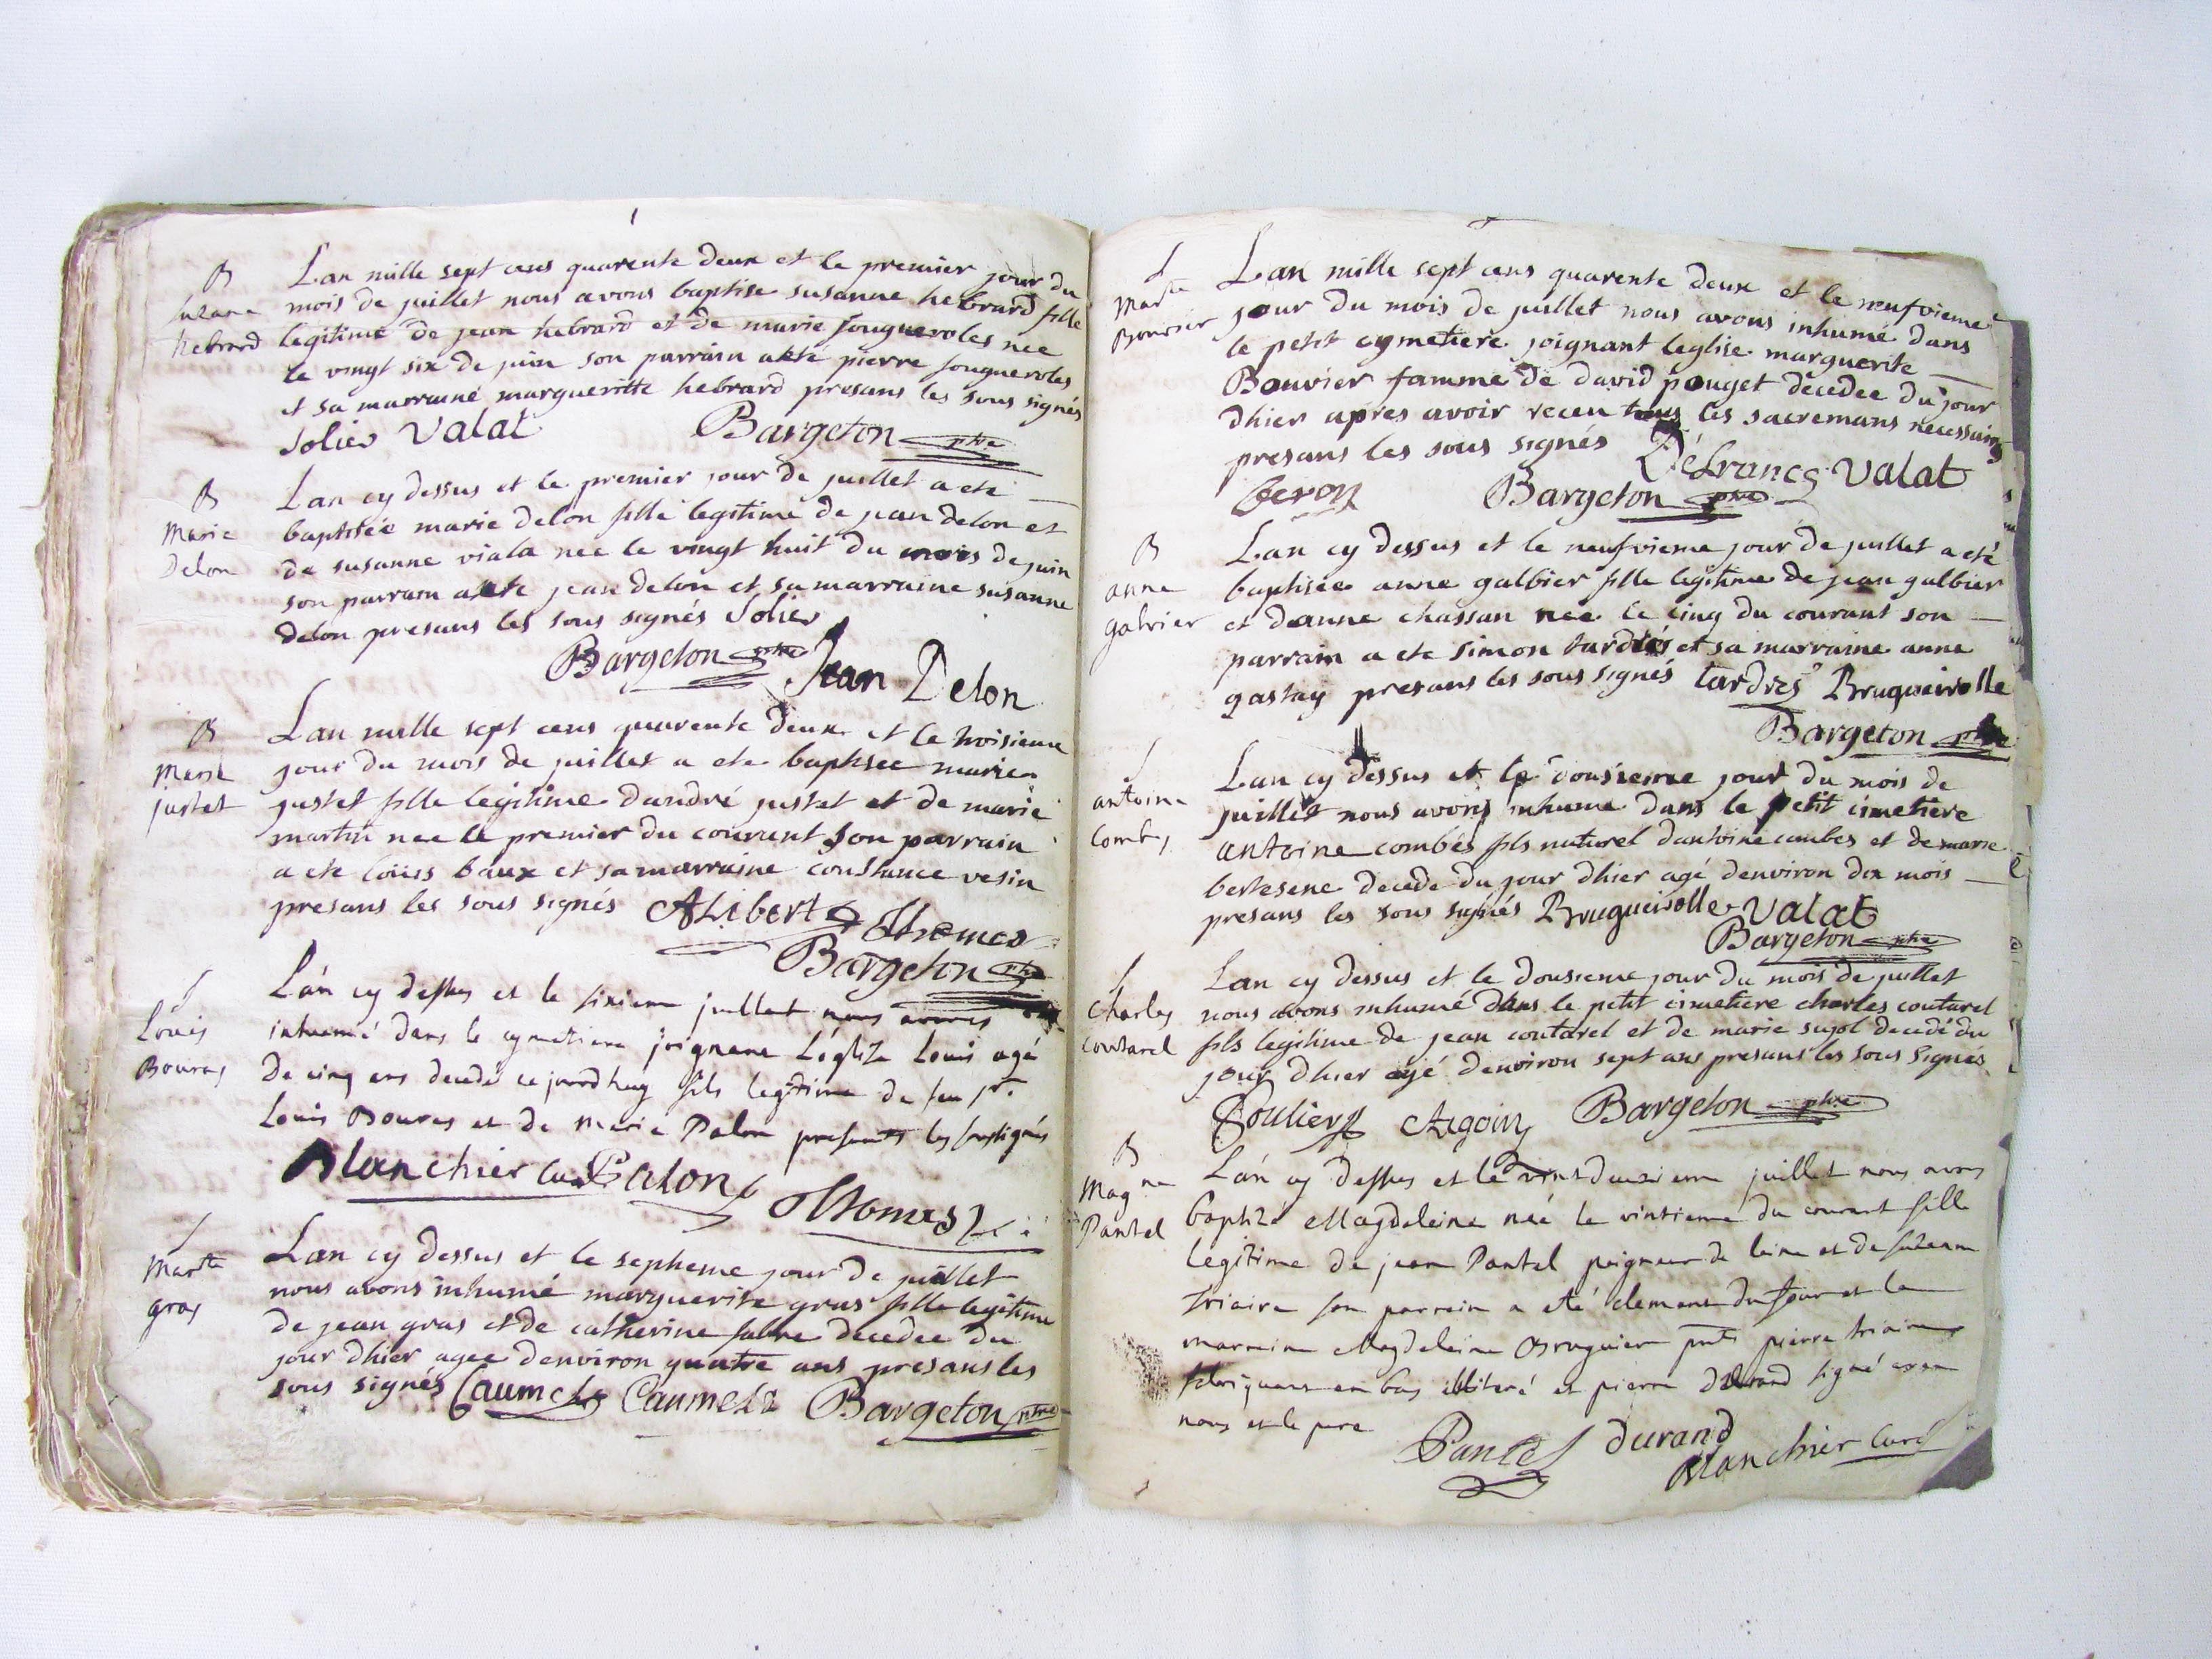 B
Suzane
hebrard
Lan mille sept cens quarente deux et le premier jour du
mois de juillet nous avons baptise susanne hebrard fille
legitime de jean hebrard et de marie fougueroles nee
le vingt six de juin son parrain a ete pierre fougueroles
et sa marraine margueritte hebrard presans les sous signés
Solier Valat Bargeton ptre
B
Marie
Delon
Lan cy dessus et le premier jour de juillet a ete
baptisée marie delon fille legitime de jean delon et
de susanne viala nee le vingt huit du mois de juin
son parrain a ete jean delon et sa marraine susanne
delon presans les sous signés Solier
Bargeton ptre Jean Delon
B
Marie
justet
Lan mille sept cens quarente deux et le troisieme
jour du mois de juillet a ete baptisee marie
justet fille legitime dandré justet et de marie
martin nee le premier du courant son parrain
a ete loüis baux et sa marraine constance vesin
presans les sous signés ALibert Thomas
Bargeton ptre
Loüis
Bouras
L'án cy dessus et le sixieme juillet nous avons
inhumé dans le cymetiere joignant l'église Louis agé
de cinq ans decedé ce jourdhuy fils legitime de feu sr.
Louis Bouras et de Marie Palon presents les sousignés
Blanchier curé Palon Thomas
Marte
gras
Lan cy dessus et le septieme jour de juillet
nous avons inhumé marguerite gras fille legitime
de jean gras et de catherine fabre decedee du
jour dhier agee denviron quatre ans presans les
sous signés Caumels Caumels Bargeton ptre
Marte
Bouvier
Lan mille sept cens quarente deux et le neufvieme
jour du mois de juillet nous avons inhumé dans
le petit cymetiere joignant leglise marguerite
Bouvier famme de david pouget décedee du jour
dhier apres avoir receu tous les sacremans necessaires
presans les sous signés Défrancs Valat
Bargeton ptre
B
anne
galbier
Lan cy dessus et le neufvieme jour de juillet a eté
baptisée anne galbier fille legitime de jean galbier
et danne chassan nee le cinq du courant son
parrain a ete simon tardres et sa marraine anne
gastay presans les sous signés tardres Brugueirolle
Bargeton ptre
antoine
Combes
Lan cy dessus et le dousieme jour du mois de
juillet nous avons inhume dans le petit cimetiere
antoine combes fils naturel dantoine combes et de marie
bertesene decede du jour dhier agé denviron dix mois
presans les sous signés Brugueirolle Valat
Bargeton ptre
Charles
coutarel
Lan cy dessus et le dousieme jour du mois de juillet
nous avons inhumé dans le petit cimetiere charles coutarel
fils legitime de jean coutarel et de marie sujol decedé du
jour dhier agé denviron sept ans presans les sous signés
Soulier Argoin Bargeton ptre
B
Magne
Pantel
L'án cy dessus et le vint deuxieme juillet nous avons
baptizé Magdeleine née le vintieme du courant fille
legitime de jean Pantel peigneur de laine et de suzanne
Triaire son parrein a eté clement dufour et la
marreine Magdeleine Bruguier pnts pierre triaire
fabriquant en bas illiteré et pierre durand signé avec
nous et le pere
Pantel durand
Blanchier curé